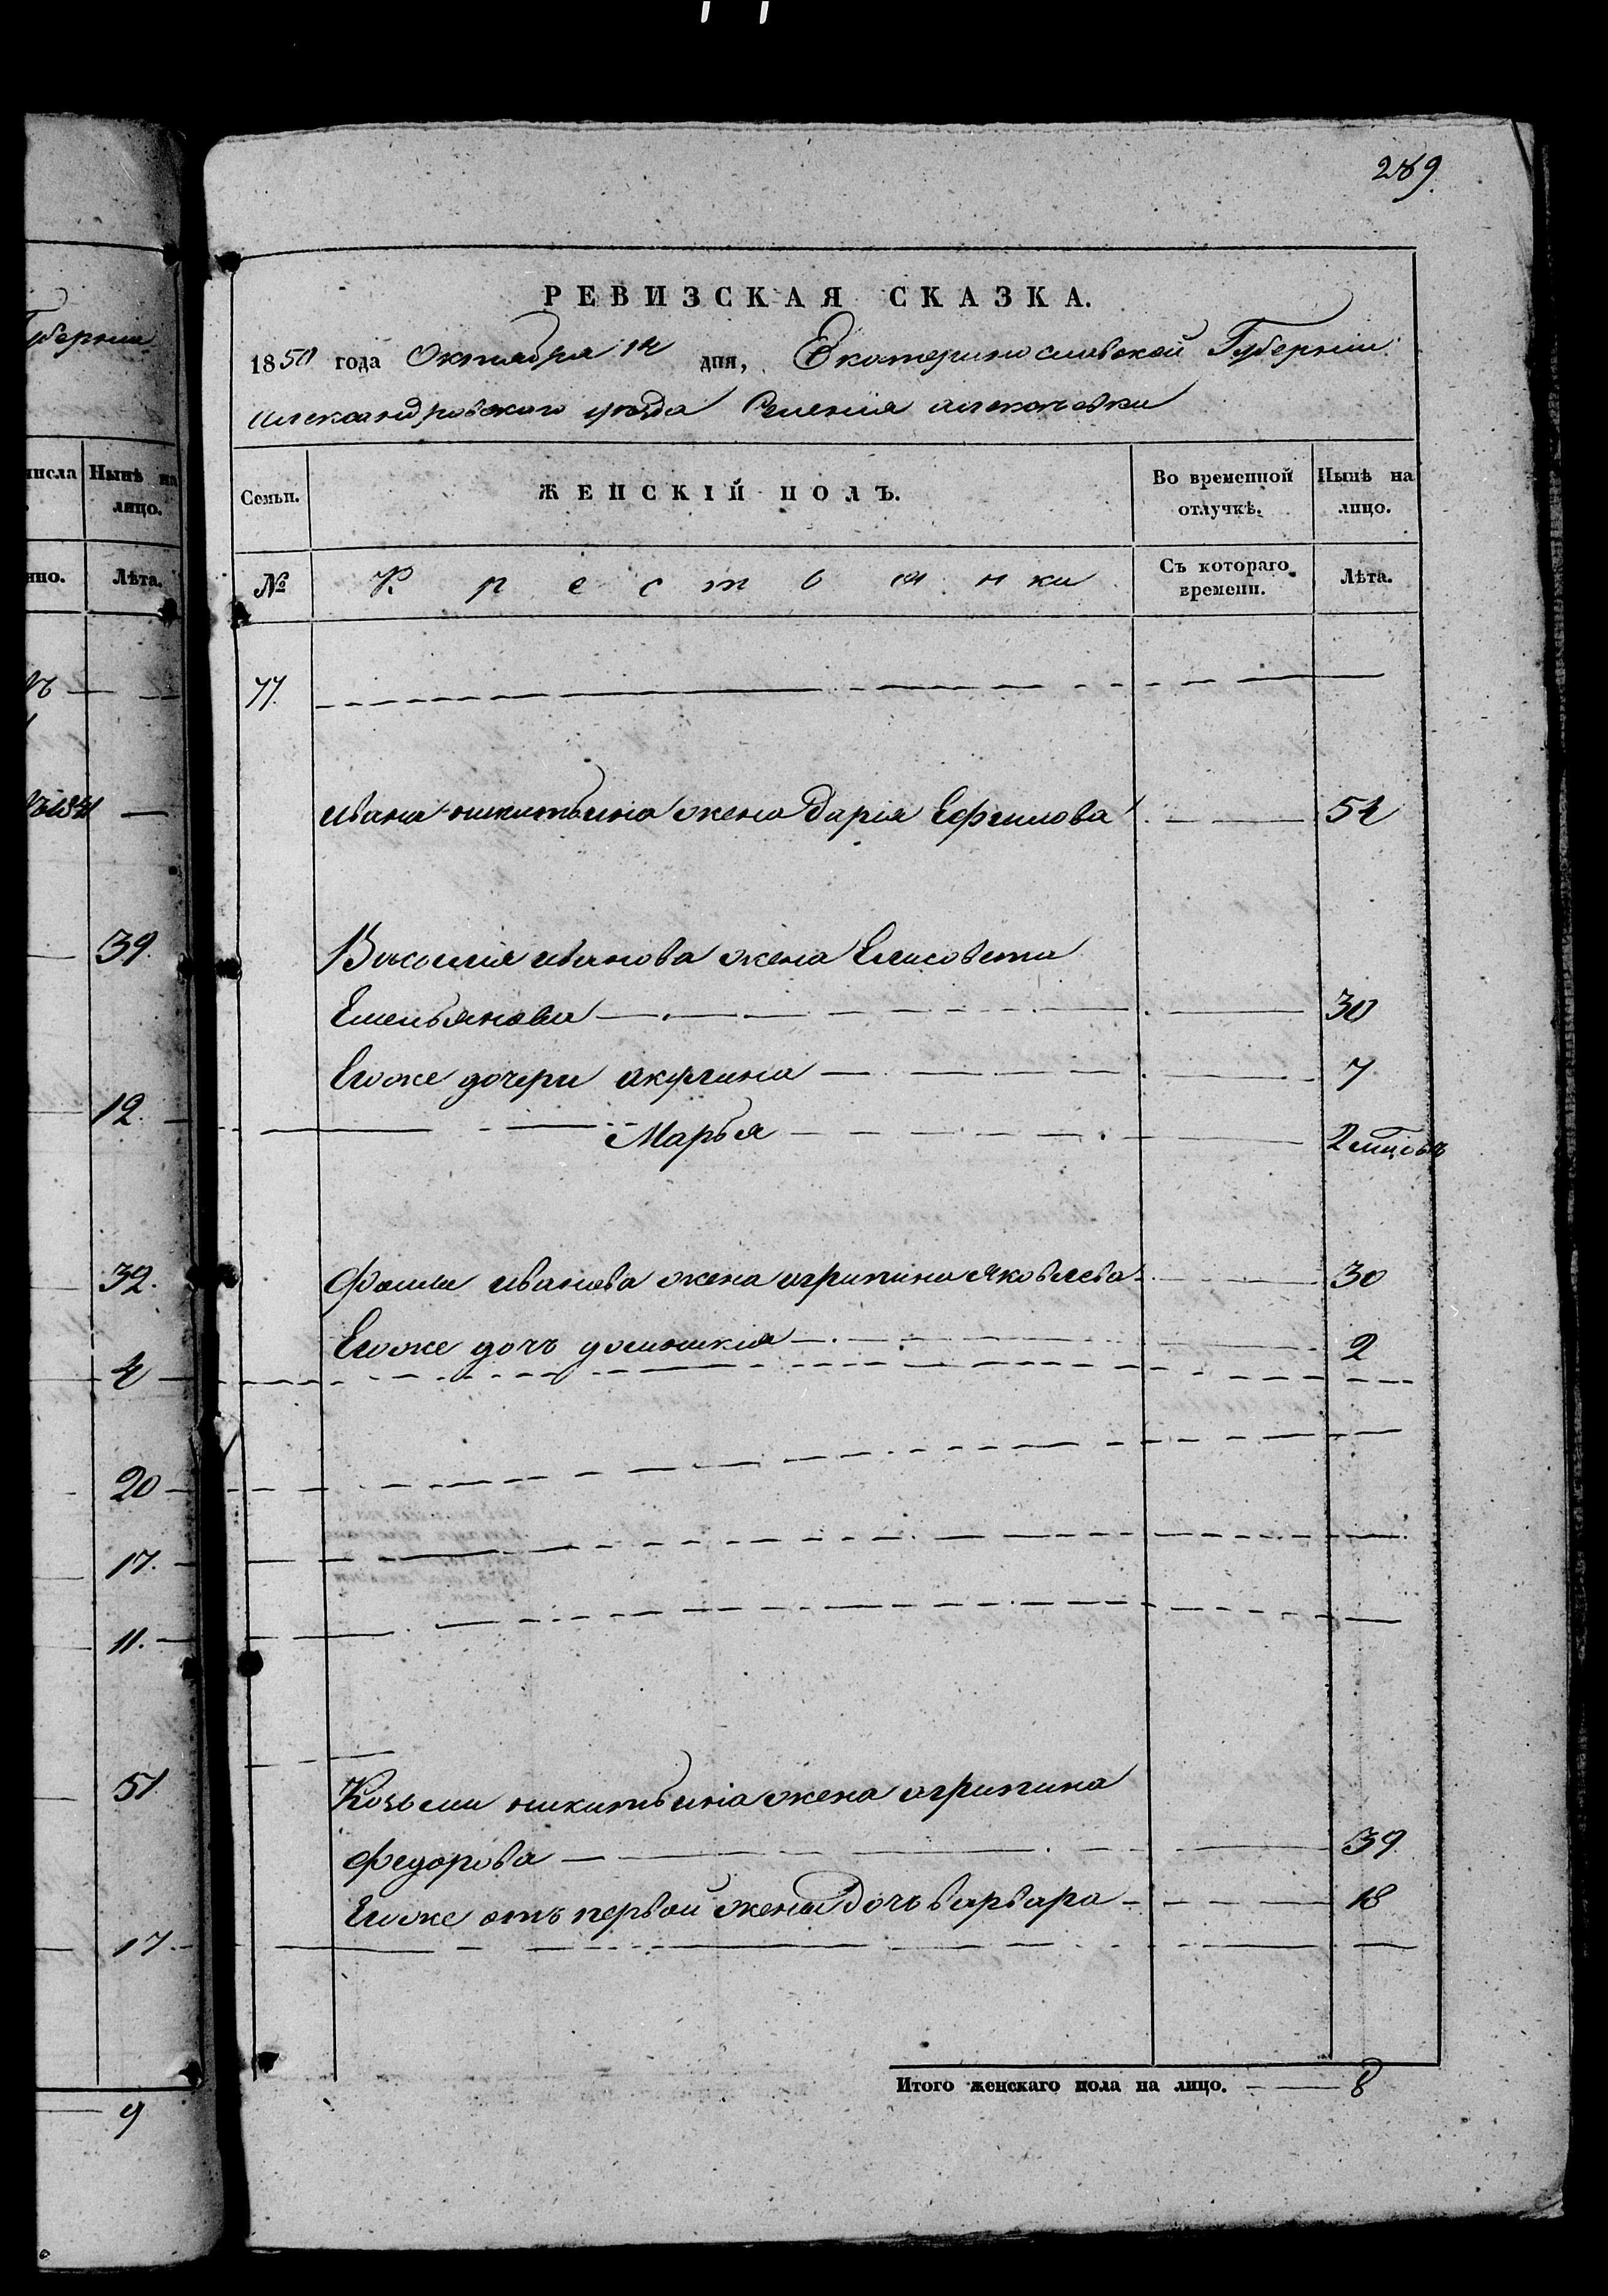 289.
губерніи
РЕВИЗСКАЯ СКАЗКА.
1850 года Октября 14 дня, Екатеринославской Губерніи
Александровского уезда Селенія
числа Нынѣ на лицо.
Семьи. ЖЕНСКІЙ ПОЛЪ. Во временной отлучкѣ. Нынѣ на лицо.
Лѣта.
№ Крестьянки Съ котораго времени. Лѣта.
77.
Ивана Никитьина жена Дарія Ефимова 54
39. Василія Иванова жена Елисовета
Емельянова 30
Егоже дочери Акулина 7
12. Марья 2 мцовъ
32. Фомы Иванова жена Агрипина Яковлева 30
Егоже дочъ домникия 2
4
20
17.
11.
51 Козьмы Никитьина жена Агрипина
Федорова 39
Егоже отъ первой жены дочь варвара 18
17
Итого женскаго пола на лицо. 8
9